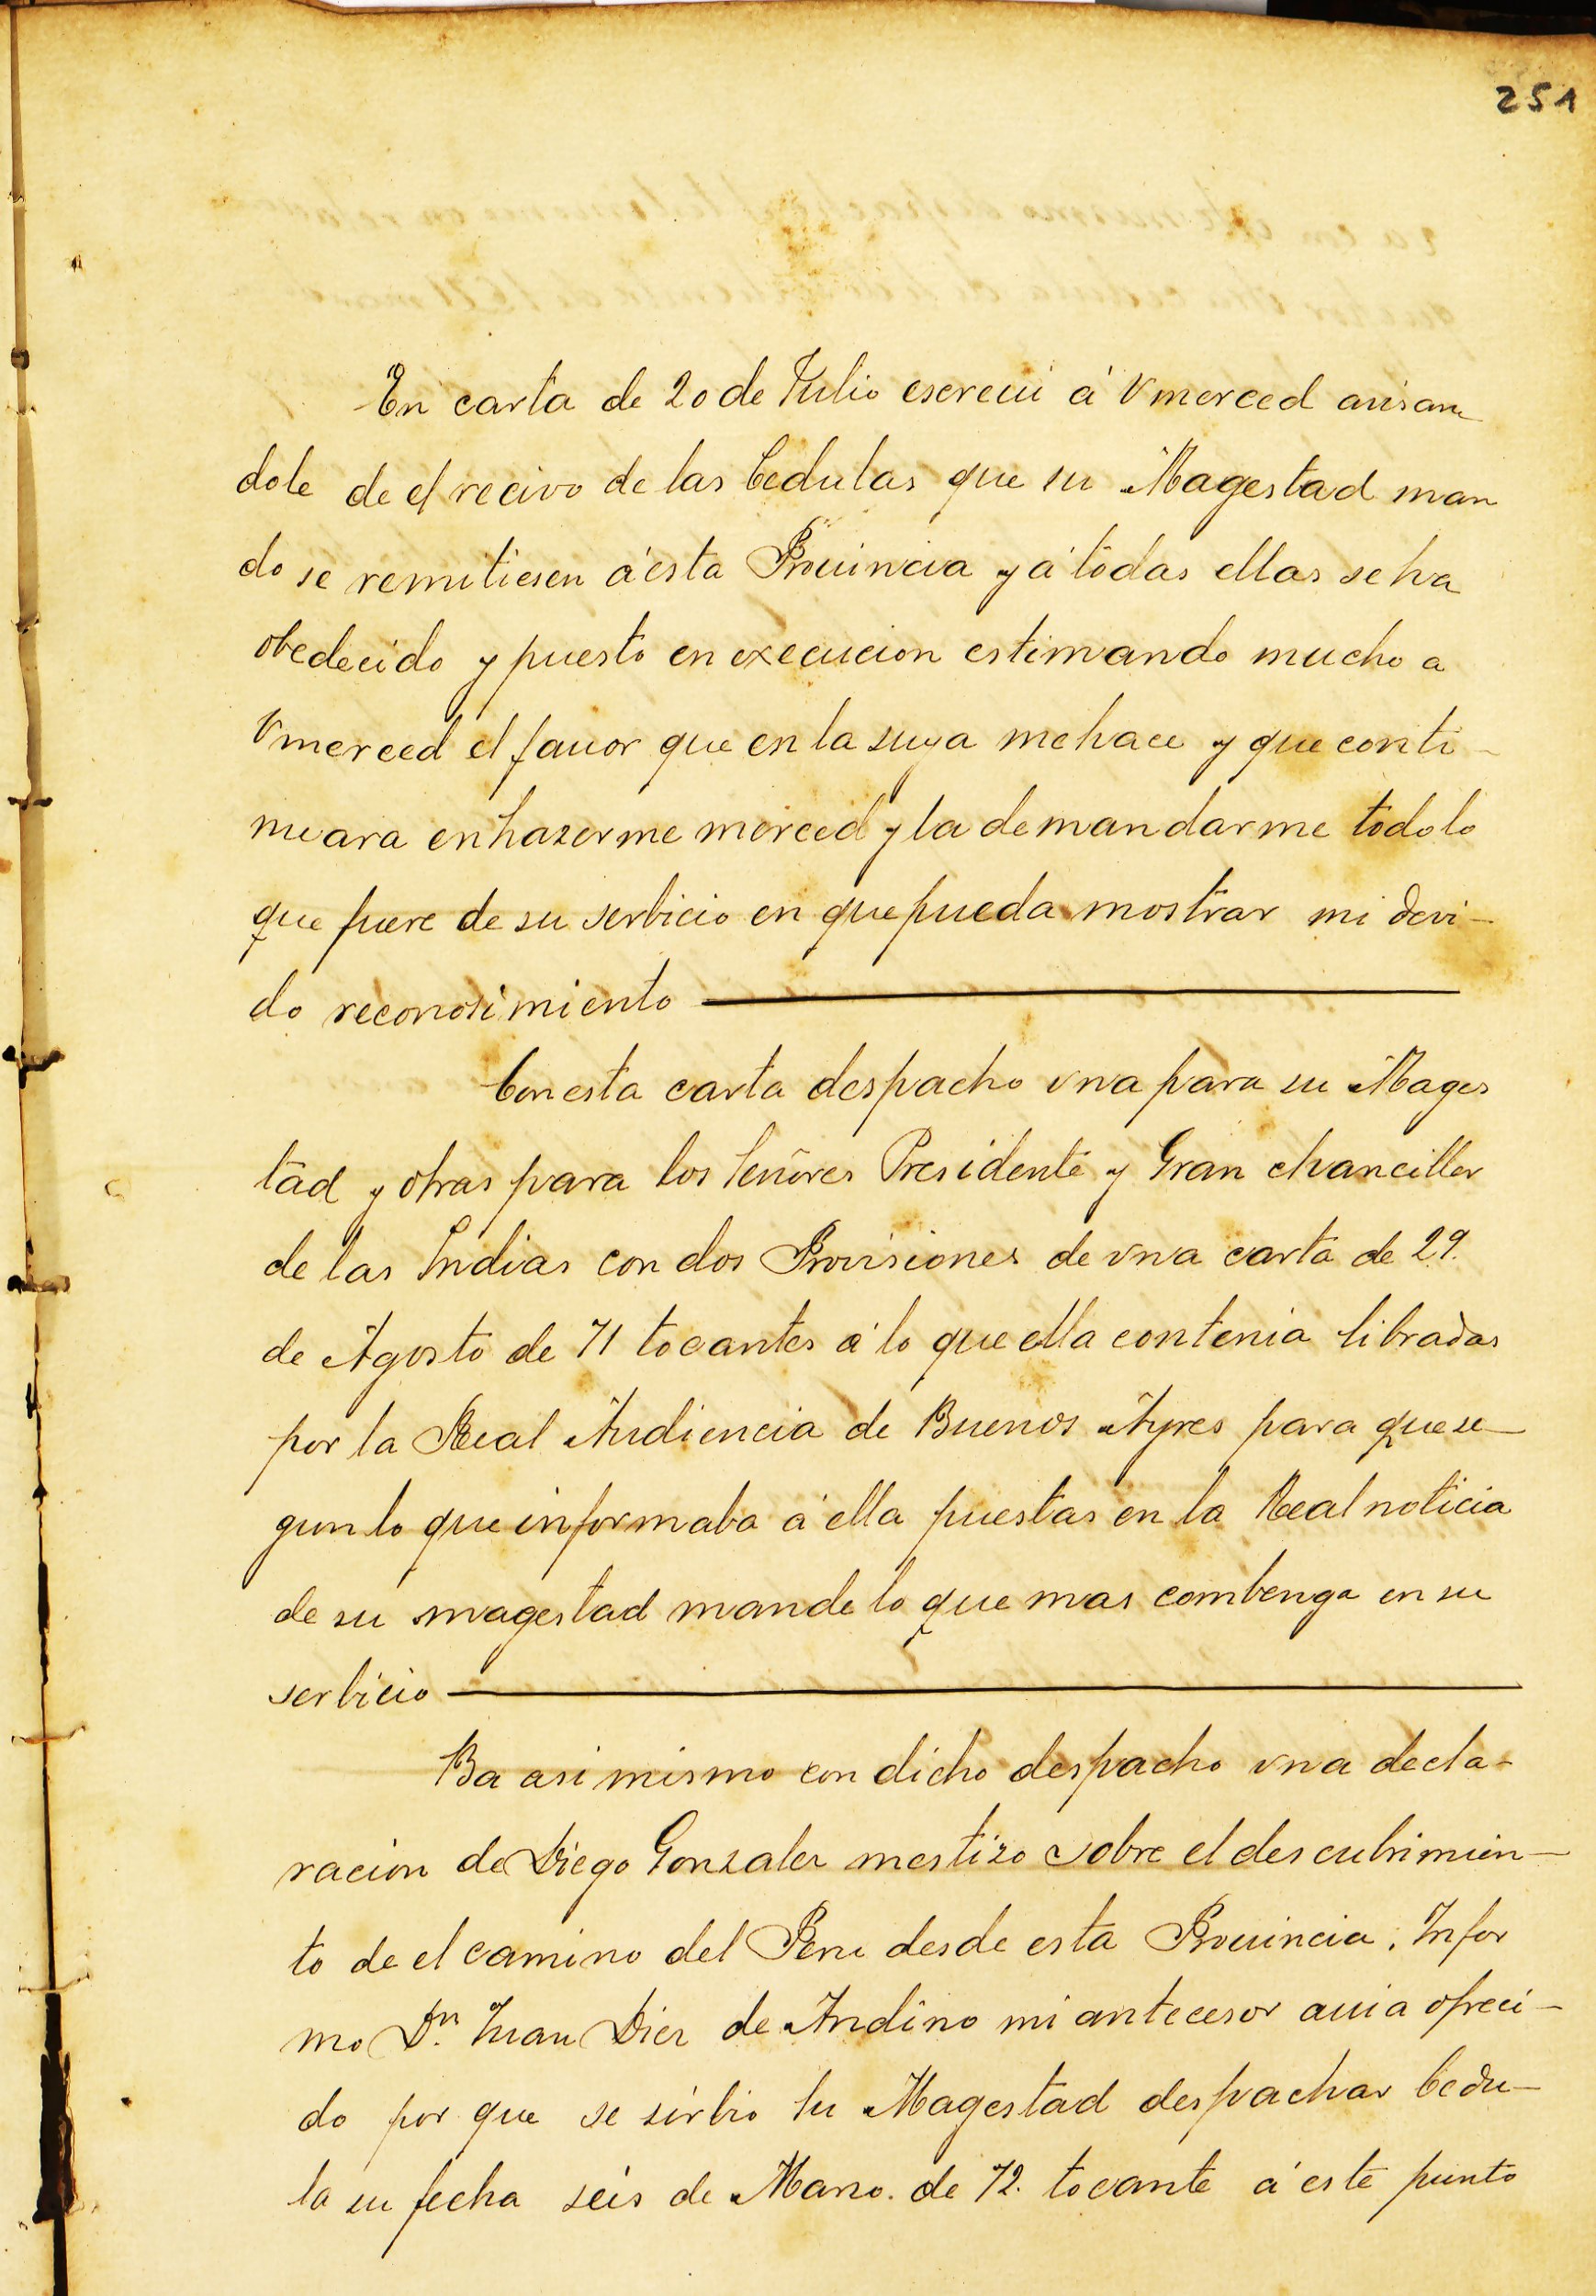 251
En carta de 20 de Julio escreui á Vmerced auisan
dole de el recivo de las Cedulas que su Magestad man
do se remitiesen á esta Prouincia y á todas ellas se ha
obedecido y puesto en execucion estimando mucho a
Vmerced el fauor que en la suya me hace y que conti-
nuara en hazerme merced y la de mandarme todo lo
que fuere de su serbicio en que pueda mostrar mi devi-
do reconosimiento
Con esta carta despacho vna para su Mages
tad y otras para los Señores Presidente y Gran chanciller
de las Indias con dos Provisiones de vna carta de 29.
de Agosto de 71 tocantes á lo que ella contenia libradas
por la Real Audiencia de Buenos Ayres para que se-
gun lo que informaba á ella puestas en la Real noticia
de su magestad mande lo que mas combenga en su
serbicio
Ba asi mismo con dicho despacho vna decla-
racion de Diego Gonzalez mestizo sobre el descubrimien-
to de el camino del Peru desde esta Prouincia. Infor
mo Dn. Juan Diez de Andino mi antecesor auia ofreci-
do por que se sirbio su Magestad despachar Cedu-
la su fecha seis de Marzo. de 72. tocante á este punto